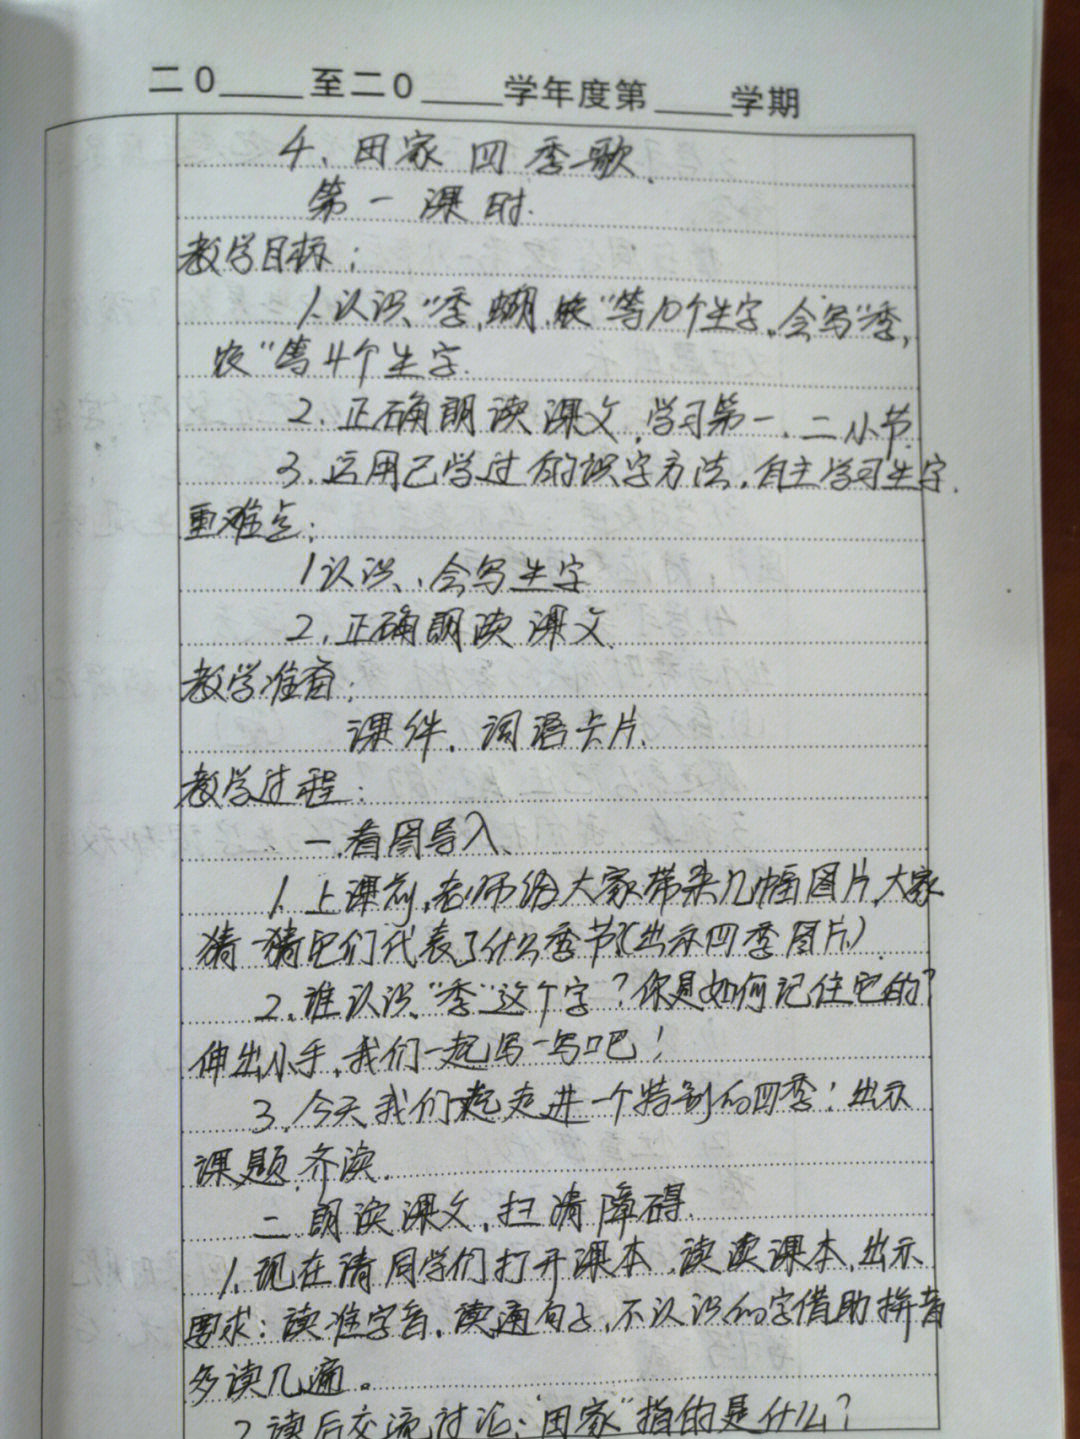 二0____至二0____学年度第____学期
4、田家四季歌.
第一课时.
教学目标:
1.认识“季,蝴,农“等10个生字,会写“季,
农“等4个生字.
2.正确朗读课文,学习第一、二小节.
3.运用已学过的识字方法,自主学习生字.
重难点:
1认识、会写生字
2.正确朗读课文
教学准备:
课件、词语卡片.
教学过程:
一.看图导入
1.上课前,老师给大家带来几幅图片,大家
猜一猜它们代表了什么季节?(出示四季图片)
2.谁认识“季“这个字?你是如何记住它的?
伸出小手,我们一起写一写吧!
3.今天我们一起走进一个特别的四季!出示
课题,齐读.
二朗读课文,扫清障碍.
1.现在请同学们打开课本,读读课本,出示
要求:读准字音,读通句子,不认识的字借助拼音
多读几遍。
2读后交流讨论:“田家“指的是什么?